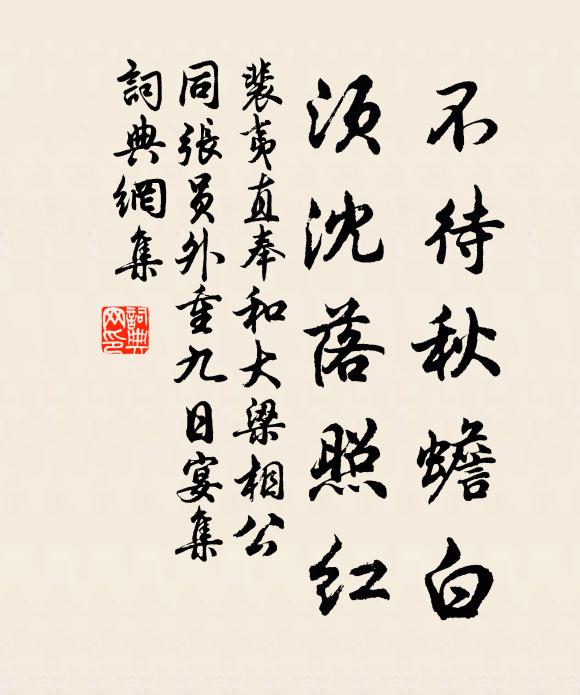 不待秋蟾白
須沈落照紅
裴夷直奉和大梁相公
同張員外重九日宴集
詞典網集
詞典网印